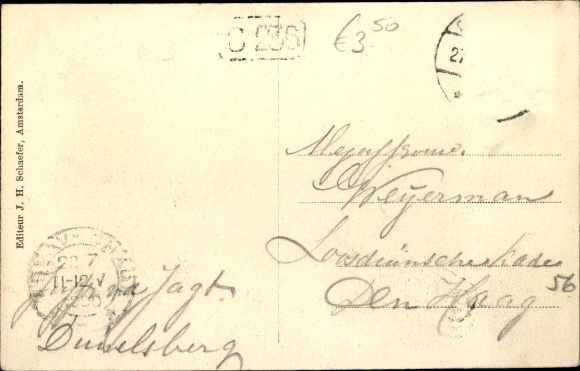 C 236
€3⁵⁰
2
Editeur J. H. Schaefer, Amsterdam.
Mejuffrouw.
Weyerman
Loosduinschekade
56
Den Haag
22 7
11-12 V
Jagt.
Duivelsberg